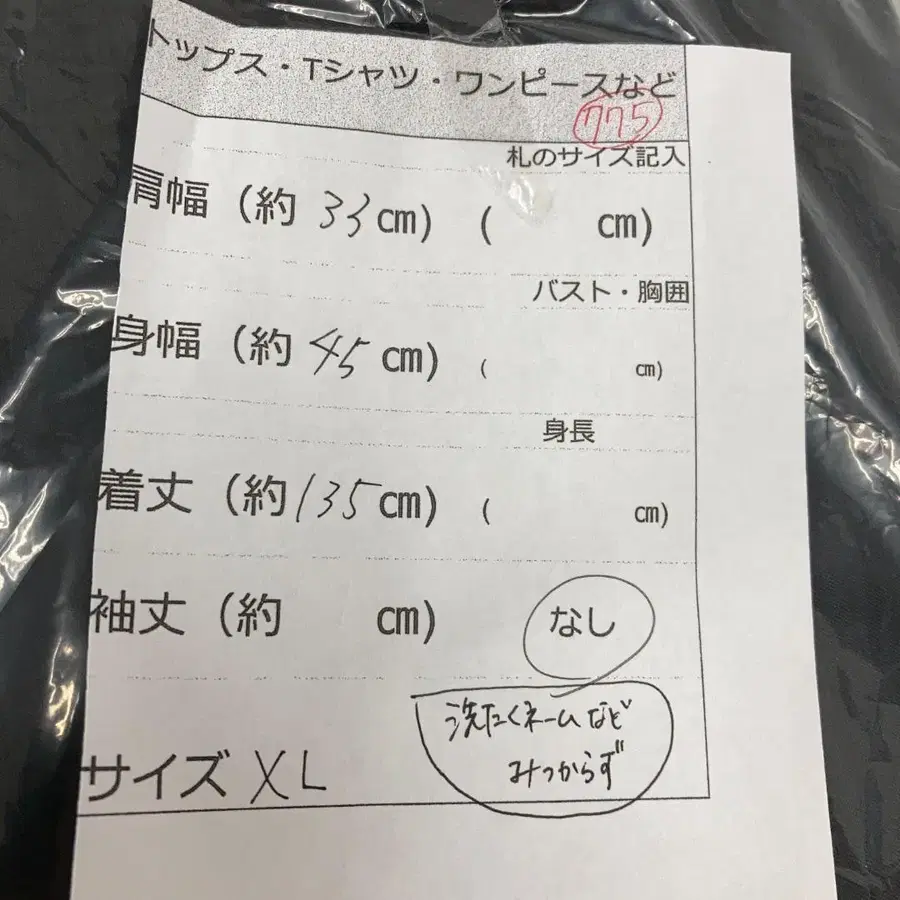 トップス・Tシャツ・ワンピースなど
775
札のサイズ記入
肩幅（約 33 cm）（ cm）
バスト・胸囲
身幅（約 45 cm）（ cm）
身長
着丈（約 135 cm）（ cm）
袖丈（約 cm） なし
洗たくネームなど
みつからず
サイズ XL